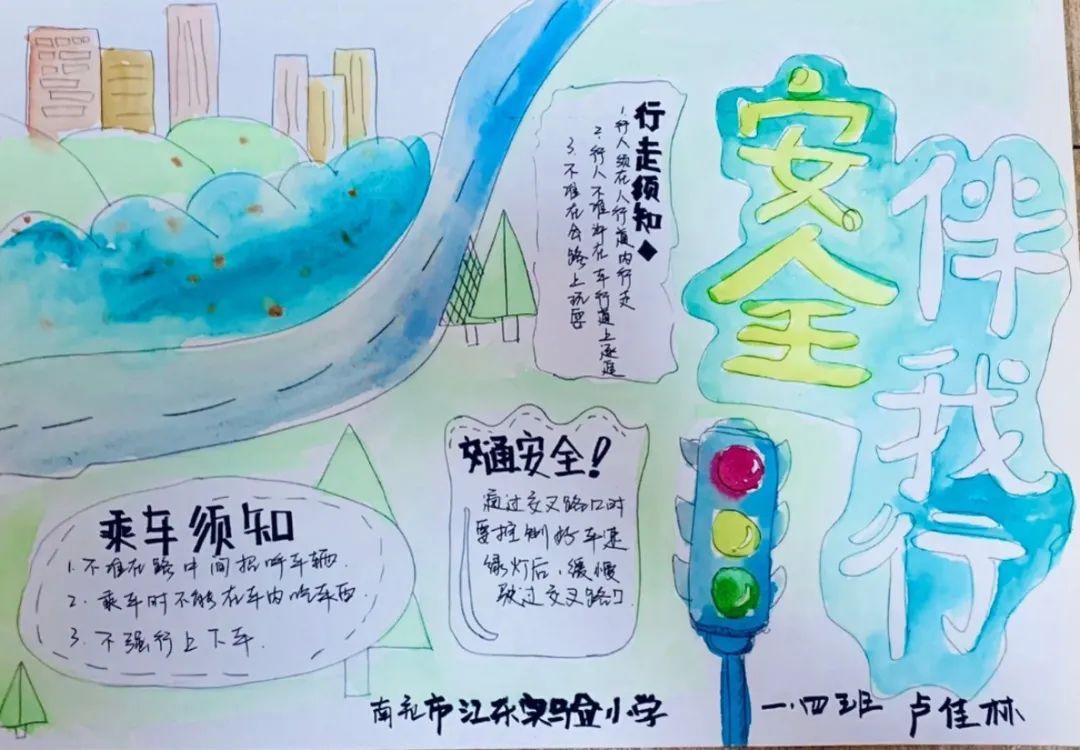 安全
伴我行
行走须知◆
1.行人须在人行道内行走
2.行人不准许在车行道上逐逛
3.不准在公路上玩耍
交通安全!
通过交叉路口时
要控制好车速
绿灯后,缓慢
驶过交叉路口
乘车须知
1.不准在路中间招呼车辆.
2.乘车时不能在车内吃东西.
3.不强行上下车.
南充市江东实小学
一.四班 卢佳林